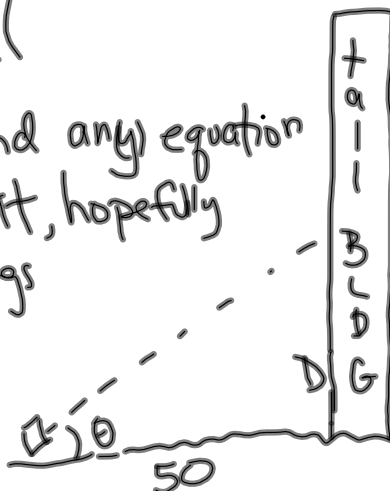 nd any) equation
it, hopefully
gs
tall BLDG
D
θ
50